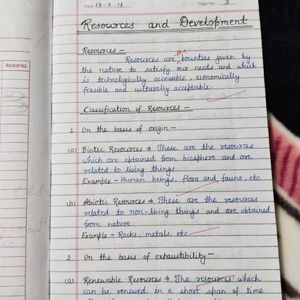 Date 17-7-18
Page No. 3
Remarks
Resources and Development
Resources -
Resources are the bounties given by
the nature to satisfy our needs and which
is technologically accessible, economically
feasible and culturally acceptable.
Classification of Resources -
1. On the basis of origin -
(a) Biotic Resources → These are the resources
which are obtained from biosphere and are
related to living things
Example - Human beings, flora and fauna, etc.
(b) Abiotic Resources → These are the resources
related to non-living things and are obtained
from nature.
Example - Rocks, metals, etc.
2. On the basis of exhaustibility -
(a) Renewable Resources → The resources which
can be renewed in a short span of time